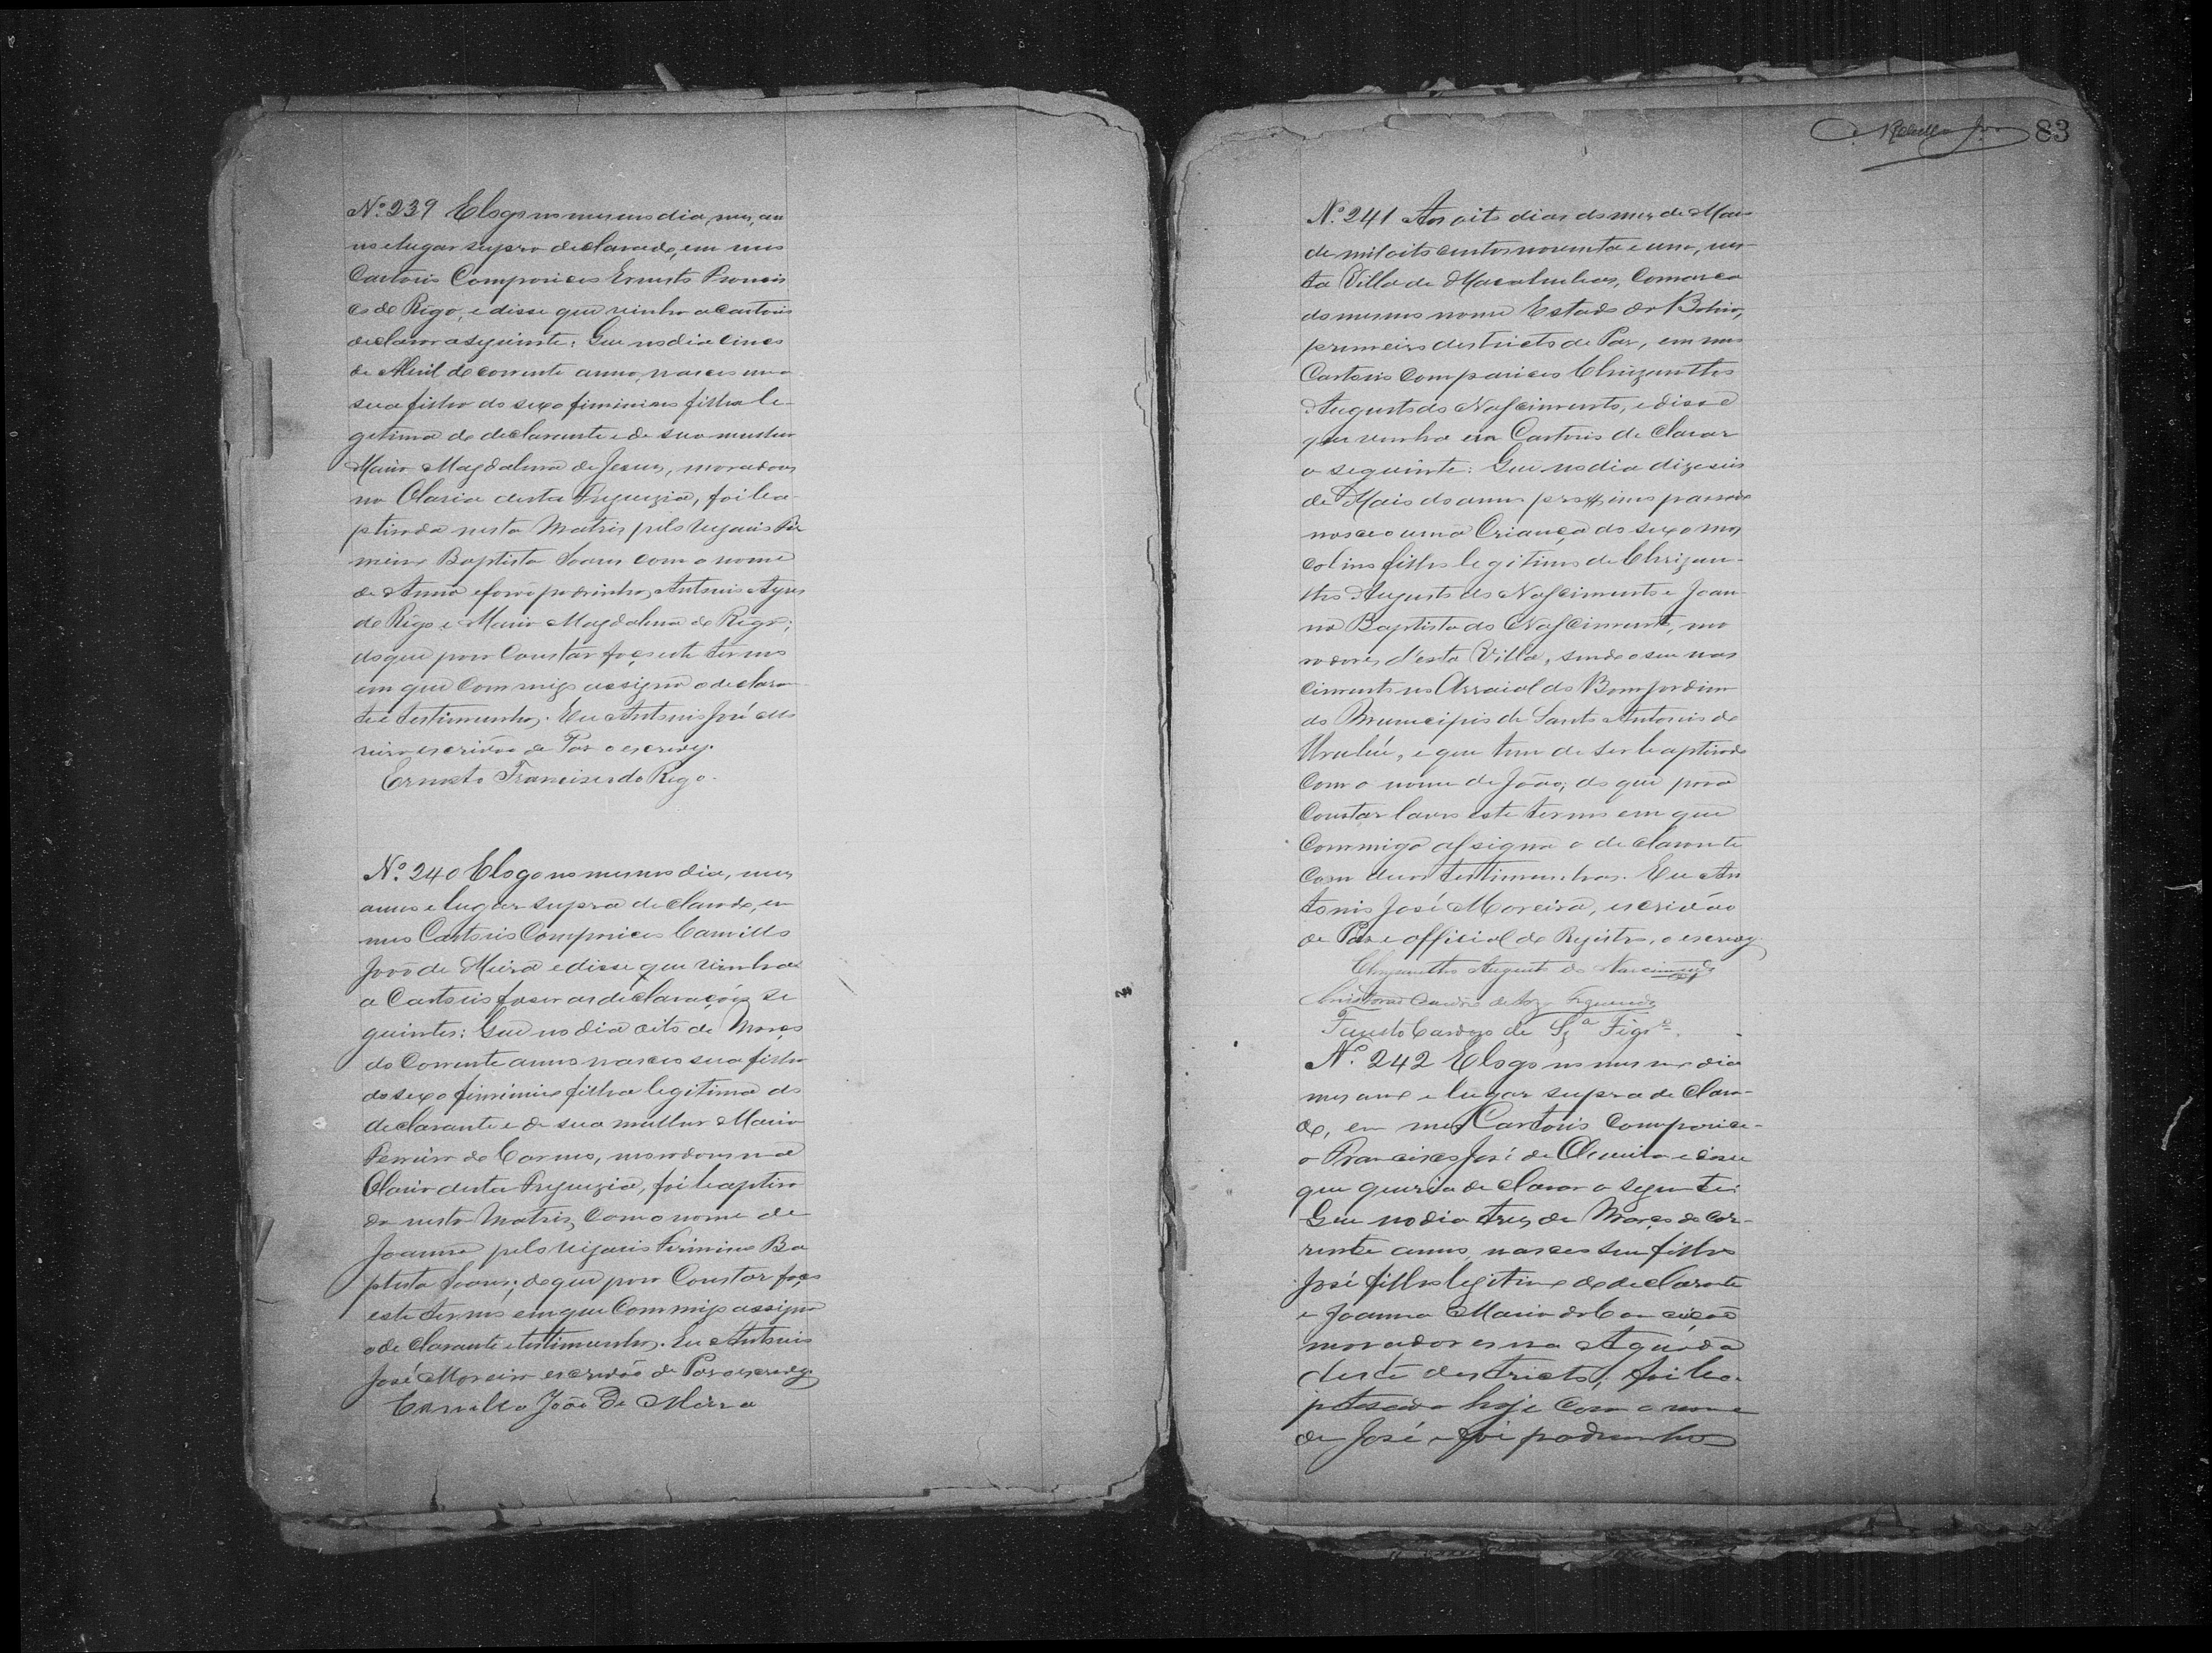 Nº 239 E logo no mesmo dia, mez, an
no e lugar supra declarado, em meo
Cartorio Compariceo Ernesto Francis
co do Rêgo, e disse que vinha a cartorio
declarar o siguinte: Que no dia cinco
de Abril do corrente anno, nasceo uma
sua filha do sexo fiminino filha le-
getima do declarante e de sua mulher
Maria Magdalena de Jesus, moradores
na Olaria desta Freguezia, foi ba-
ptisada nesta Matriz pelo Vigario Fir
mino Baptista Soares com o nome
de Anna e forão padrinhos Antonio Ayres
do Rêgo e Maria Magdalena do Rêgo;
do que para Constar faço este termo
em que commigo assigna o declara
te e testimunhas. Eu Antonio José Mo
reira escrivão de Paz o escrevy.
Ernesto Francisco do Rego.
Nº 240 E logo no mesmo dia, mez,
anno e lugar supra declarado, em
meo Cartorio Compariceo Camillo
João de Meira e disse que vinha
a Cartorio faser as declarações se
guintes: Que no dia oito de Março
do Corrente anno nasceo sua filha
do sexo fiminino filha legitima do
declarante e de sua mulher Maria
Ferreira do Carmo, moradores na
Olaria desta Freguezia, foi baptisa
da nesta Matriz, Com o nome de
Joanna pelo Vigario Firmino Ba
ptista Soares; do que para Constar faço
este termo em que Commigo assigna
o declarante e testimunhas. Eu Antonio
José Moreira escrivão de Paz o escrevy.
Camillo João De Meira
83
Nº 241 Aos oito dias do mez de Maio
de mil oito centos noventa e um, nes-
ta Villa de Macahubas, Comarca
do mesmo nome Estado da Bahia,
primeiro destricto de Paz, em meo
Cartorio Compariceo Chrizantho
Augusto do Nascimento, e disse
que vinha em Cartorio declarar
o seguinte: Que no dia dizeseis
de Maio do anno proximo passado
nasceo uma Criança do sexo mas
colino filho legitimo de Chrizan-
tho Augusto do Nascimento e Joan-
na Baptista do Nascimento, mo
radores d'esta Villa, sendo o seu nas
cimento no Arraial do Bom Jardim
do Municipio de Santo Antonio do
Urubú, e que tem de ser baptisado
Com o nome de João; do que para
Constar lavro este termo em que
Commigo assigna o declarante
Com duas testimunhas. Eu An
tonio José Moreira, escrivão
de Paz e official do Registro, o escrevy
Chrysantho Augusto do Nascimento
Fausto Cardozo de Sza Figrdo.
Nº 242 E logo no mesmo dia
mez anno e lugar supra declara-
do, em meo Cartorio Comparice-
o Francisco José de Almeida e disse
que queria declarar o seguinte:
Que no dia tres de Março do cor-
rente anno, nasceo seu filho
José filho legitimo do declarante
e Joanna Maria da Conceição
moradores na Aguáda
deste destricto, foi ba-
ptisado hoje com o nome
de José e foi padrinho